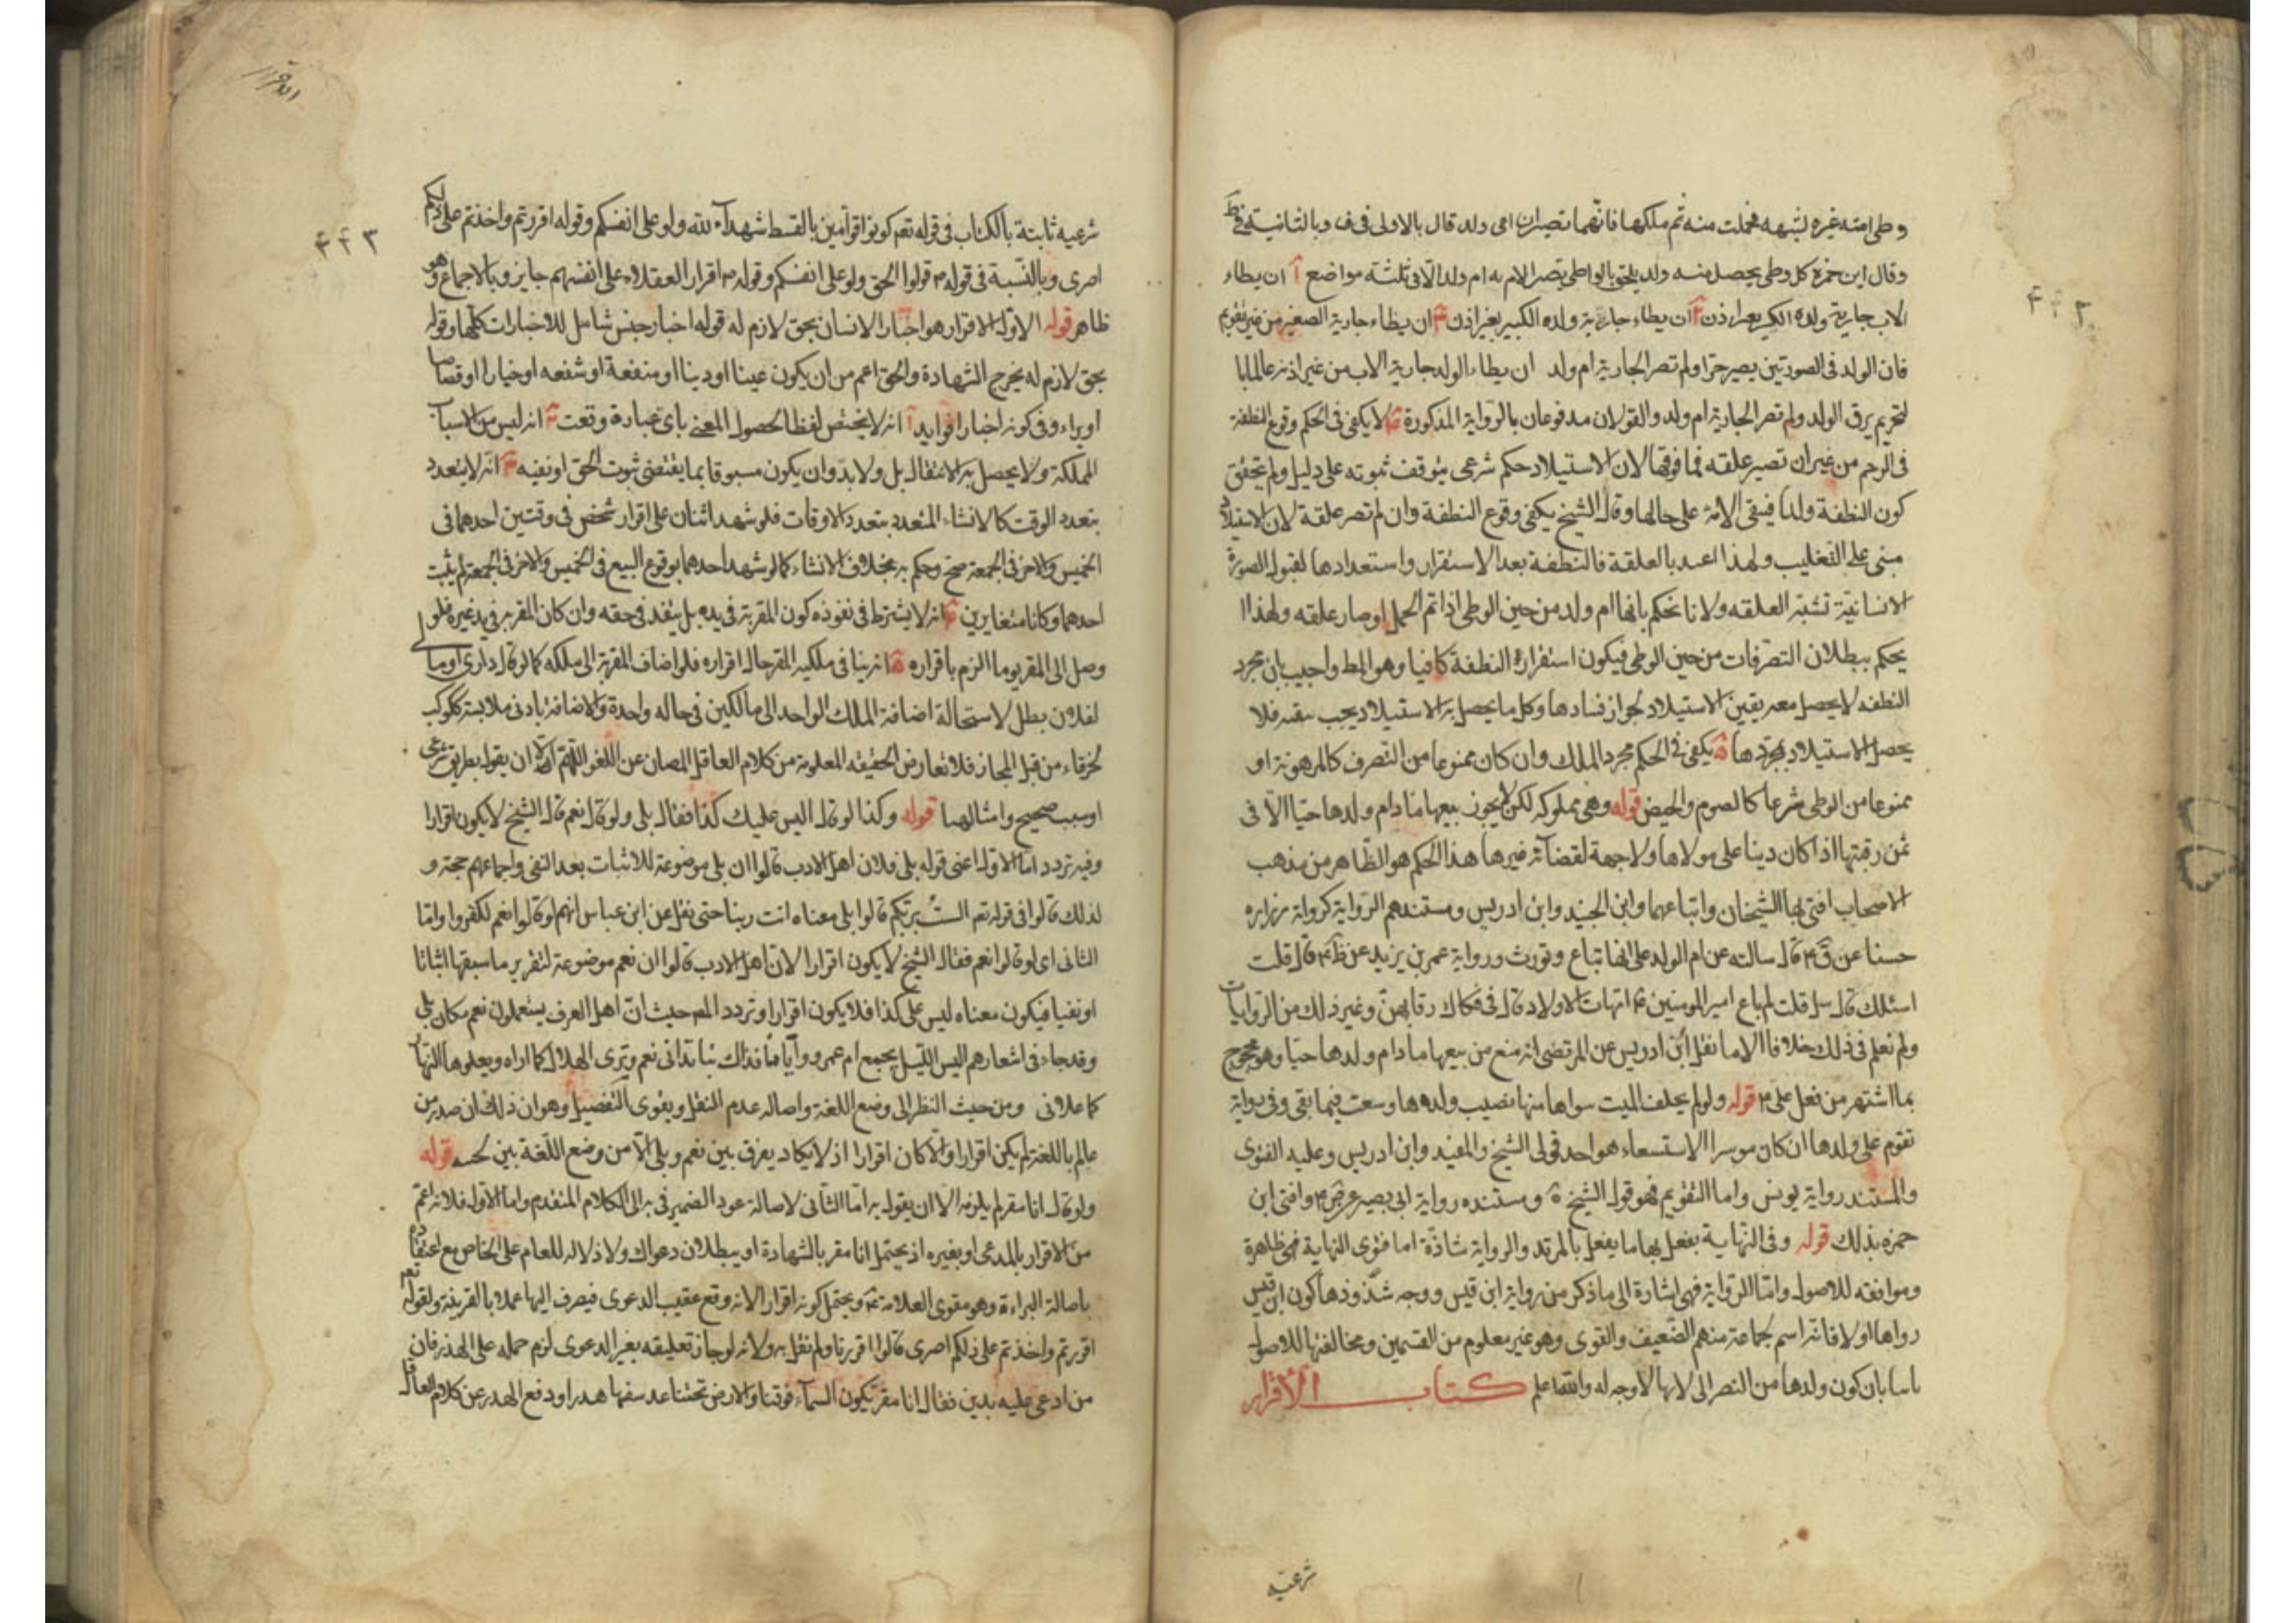 وطى امته غيره لشبهه فحملت منه ثم ملكها فانهما تصيران امى ولد قال بالاولى فى ف وبالثانية فى ط
وقال ابن حمزه كل وطى يحصل منه ولد يلحق بالواطى تصير الام به ام ولد الا فى ثلثة مواضع آ ان يطاء
الاب جارية ولده الكبير بغير اذن ان يطاء جارية ولده الكبير بغير اذن ان يطاء جارية الصغير من غير تقويم
فان الولد فى الصورتين يصير حرا ولم تصر الجارية ام ولد ان يطاء الولد جارية الاب من غير اذنه عالما با
لتحريم يرق الولد ولم تصر الجارية ام ولد والقولان مدفوعان بالرواية المذكورة لا يكفى فى الحكم وقوع النطفة
فى الرحم من غير ان تصير علقه فما فوقها لان الاستيلاد حكم شرعى يتوقف ثبوته على دليل ولم يتحقق
كون النطفة ولدا فيبقى الامة على حالها وقال الشيخ يكفى وقوع النطفة وان لم تصر علقة لان الاستيلاد
مبنى على التغليب ولهذا اعتد بالعلقة فالنطفة بعد الاستقرار واستعدادها لقبول الصورة
الانسانية تشبه العلقه ولانا نحكم بانها ام ولد من حين الوطى اذا تم الحمل او صار علقه ولهذا
يحكم ببطلان التصرفات من حين الوطى فيكون استقرار النطفة كافيا وهو المط واجيب بان مجرد
النطفه لا يحصل معه يقين الاستيلاد لجواز فسادها وكل ما يحصل به الاستيلاد يجب فلا
يحصل الاستيلاد بمجردها ة يكفى فى الحكم مجرد الملك وان كان ممنوعا من التصرف كالمرهونة او
ممنوعا من الوطى شرعا كالصوم والحيض قوله وهى مملوكه لكن لا يجوز بيعها ما دام ولدها حيا الا فى
ثمن رقبتها اذا كان دينا على مولاها ولا جهة لقضائه غيرها هذا الحكم هو الظاهر من مذهب
الاصحاب افتى بها الشيخان واتباعهما وابن الجنيد وابن ادريس ومستندهم الرواية كرواية زراره
حسنا عن ق ع قال سالته عن ام الولد على انها تباع وتورث ورواية عمر بن يزيد عن ظ ع قال قلت
اسئلك قال سل قلت لم باع امير المومنين ع امهات الاولاد قال فى فكاك رقابهن وغير ذلك من الروايات
ولم نعلم فى ذلك خلافا الا ما نقل ابن ادريس عن المرتضى انه منع من بيعها ما دام ولدها حيا وهو محجوج
بما اشتهر من فعل على ع قوله ولو لم يخلف الميت سواها منها نصيب ولدها وسعت فيما بقى وفى رواية
تقوم على ولدها ان كان موسرا الاستسعاء هو احد قولى الشيخ والمفيد وابن ادريس وعليه الفتوى
والمستند رواية يونس واما التقويم فهو قول الشيخ ومستنده رواية ابى بصير عن ق ع وافتى ابن
حمزه بذلك قوله وفى النهاية يفعل بها ما يفعل بالمرتد والرواية شاذة اما فتوى النهاية فهى ظاهرة
وموافقته للاصول واما الرواية فهى اشارة الى ما ذكر من رواية ابن قيس ووجه شذوذها كون ابن قيس
رواها اولا فانه اسم لجماعة منهم الضعيف والقوى وهو غير معلوم من القسمين ومخالفتها للاصول
بان كون ولدها من النصرانى لابيها لا وجه له والله اعلم كتاب الاقرار
شرعيه
الاقرار
٤٤٣
شرعيه ثابتة بالكتاب فى قوله تعم كونوا قوامين بالقسط شهداء لله ولو على انفسكم وقوله اقررتم واخذتم على ذلكم
اصرى وبالسنة فى قوله ص قولوا الحق ولو على انفسكم وقوله ص اقرار العقلاء على انفسهم جايز وبالاجماع وهو
ظاهر قوله الاول الاقرار هو اخبار الانسان بحق لازم له قوله اخبار جنس شامل للاخبارات كلها وقوله
بحق لازم له يخرج الشهادة والحق اعم من ان يكون عينا او دينا او منفعة او شفعه او خيارا او قصاصا
او براء وفى كونه اخبارا فوايد آ انه لا يختص لفظا لحصول المعنى باى عبارة وقعت انه ليس من الاسباب
المملكة ولا يحصل به الانتقال بل ولا بد وان يكون مسبوقا بما يقتضى ثبوت الحق او نفيه انه لا يتعدد
بتعدد الوقت كالانشاء المتعدد بتعدد الاوقات فلو شهد اثنان على اقرار شخص فى وقتين احدهما فى
الخميس والاخر فى الجمعة صح وحكم به بخلاف الانشاء كما لو شهد احدهما بوقوع البيع فى الخميس والاخر فى الجمعة لم يثبت
احدهما وكانا متغايرين انه لا يشترط فى نفوذه كون المقر به فى يده بل ينفذ فى حقه وان كان المقر به فى يد غيره فلو
وصل الى المقر يوما الزم باقراره ة انه ينافى ملكية المقر حال اقراره فلو اضاف المقر به الى ملكه كما لو قال دارى او مالى
لفلان بطل لاستحالة اضافة الملك الواحد الى مالكين فى حاله واحدة والاضافة بادنى ملابسة ككوكب
الخرقاء من قبل المجاز فلا تعارض الحقيقه المعلومة من كلام العاقل المصان عن اللغو اللهم الا ان يقول بطريق شرعى
او سبب صحيح وامثالهما قوله وكذا لو قال اليس عليك كذا فقال بلى ولو قال نعم قال الشيخ لا يكون اقرارا
وفيه تردد اما الاول اعنى قوله بلى فلان اهل الادب قالوا ان بلى موضوعة للاثبات بعد النفى واجماعهم حجة و
لذلك قالوا فى قوله تعم الست بربكم قالوا بلى معناه انت ربنا حتى نقل عن ابن عباس انهم لو قالوا نعم لكفروا واما
الثانى اى لو قالوا نعم فقال الشيخ لا يكون اقرارا لان اهل الادب قالوا ان نعم موضوعة لتقرير ما سبقها اثباتا
او نفيا فيكون معناه ليس على كذا فلا يكون اقرارا وتردد المص حيث ان اهل العرف يستعملون نعم مكان بلى
وقد جاء فى اشعارهم اليس الليل يجمع ام عمرو وايانا فذاك بنا تدانى نعم وترى الهلال كما اراه ويعلوها النهار
كما علانى ومن حيث النظر الى وضع اللغة واصالة عدم النقل ويقوى التفصيل وهو ان ذلك ان صدر من
عالم باللغة لم يكن اقرارا والا كان اقرارا اذ لا يكاد يفرق بين نعم وبلى الا من وضع اللغة بين قوله
ولو قال انا مقر لم يلزمه الا ان يقول به اما الثانى لاصالة عود الضمير فى به الى الكلام المتقدم واما الاول فلانه اعم
من الاقرار بالمدعى او بغيره اذ يحتمل انا مقر بالشهادة او ببطلان دعواك ولا دلاله للعام على الخاص مع اعتضاده
باصالة البراءة وهو مقوى العلامة ويحتمل كونه اقرارا لانه وقع عقيب الدعوى فيصرف اليها عملا بالقرينة ولقوله تعم
اقررتم واخذتم على ذلكم اصرى قالوا اقررنا ولم نقل به ولانه لو جاز تعليقه بغير الدعوى لزم حمله على الهذر فان
من ادعى عليه بدين فقال انا مقر بكون السماء فوقنا والارض تحتنا عد سفها هدرا ودفع الهدر عن كلام العاقل